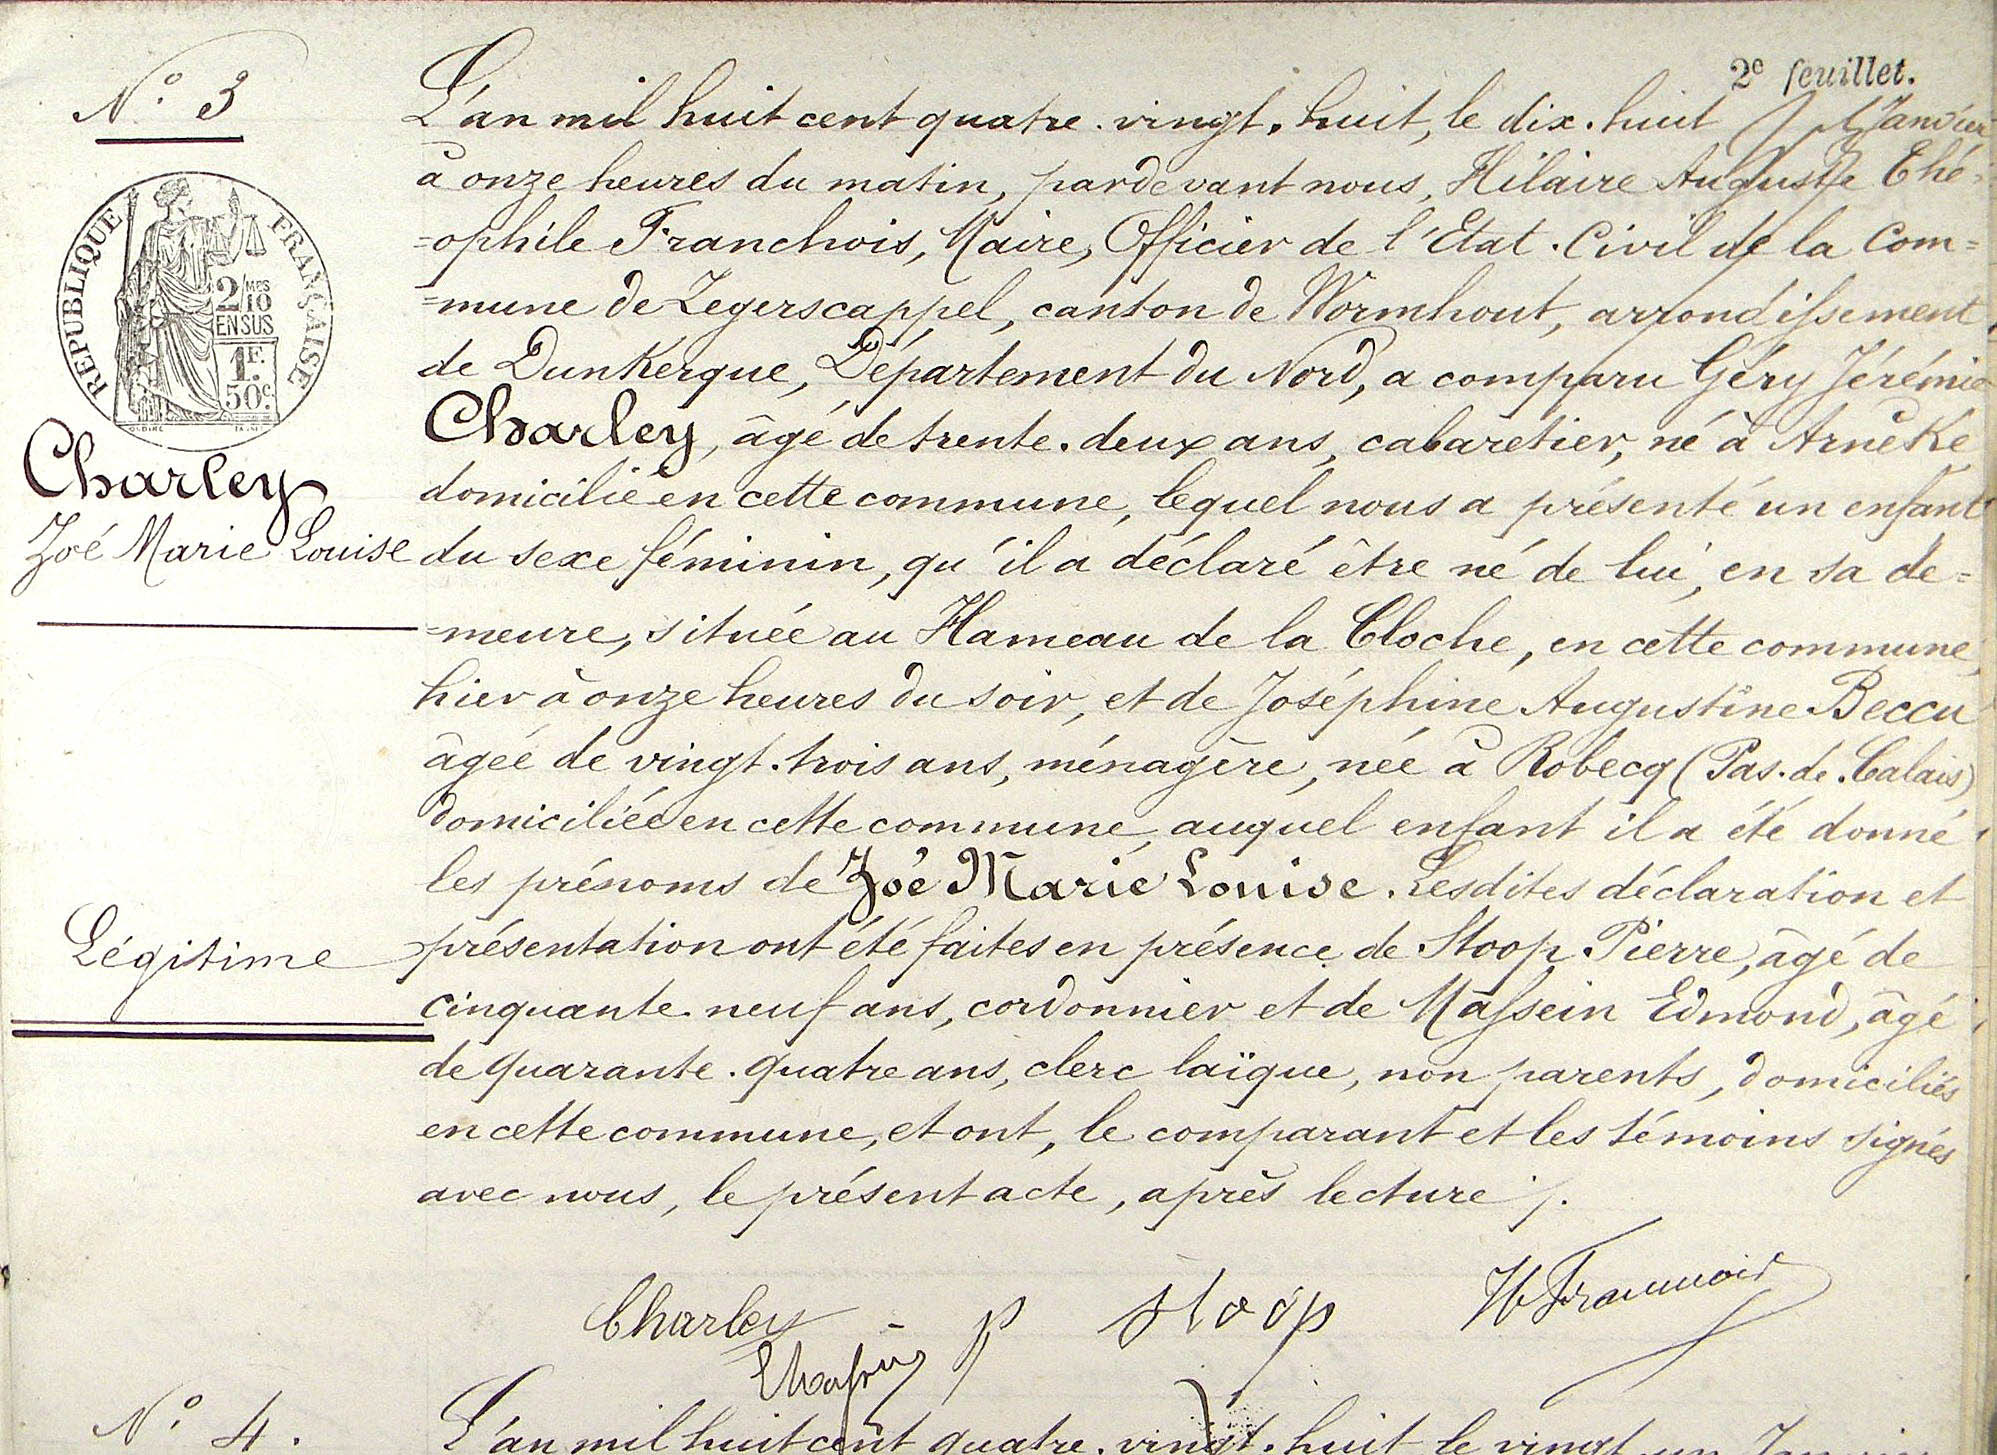 2e feuillet.
N° 3
L'an mil huit cent quatre. vingt. huit, le dix. huit Janvier
à onze heures du matin, pardevant nous, Hilaire Auguste Thé=
RÉPUBLIQUE FRANÇAISE
2/10 MES
EN SUS
1F.
50c.
=ophile Franchois, Maire, Officier de l'Etat. Civil de la Com=
=mune de Zegerscappel, canton de Wormhout, arrondissement
de Dunkerque, Département du Nord, a comparu Géry Jérémie
Charley, âgé de trente. deux ans, cabaretier, né à Arnèke
Charley
domicilié en cette commune, lequel nous a présenté un enfant
Zoé Marie Louise
du sexe féminin, qu'il a déclaré être né de lui, en sa de=
=meure, située au Hameau de la Cloche, en cette commune,
hier à onze heures du soir, et de Joséphine Augustine Beccu
âgée de vingt. trois ans, ménagère, née à Robecq (Pas. de. Calais)
domiciliée en cette commune, auquel enfant il a été donné
les prénoms de Zoé Marie Louise. Lesdites déclaration et
Légitime
présentation ont été faites en présence de Stoop Pierre, âgé de
cinquante. neuf ans, cordonnier et de Massein Edmond, âgé
de quarante. quatre ans, clerc laïque, non parents, domiciliés
en cette commune, et ont, le comparant et les témoins signés
avec nous, le présent acte, après lecture ./.
Charley - p stoop
N° 4.
L'an mil huit cent quatre. vingt. huit le vingt. un